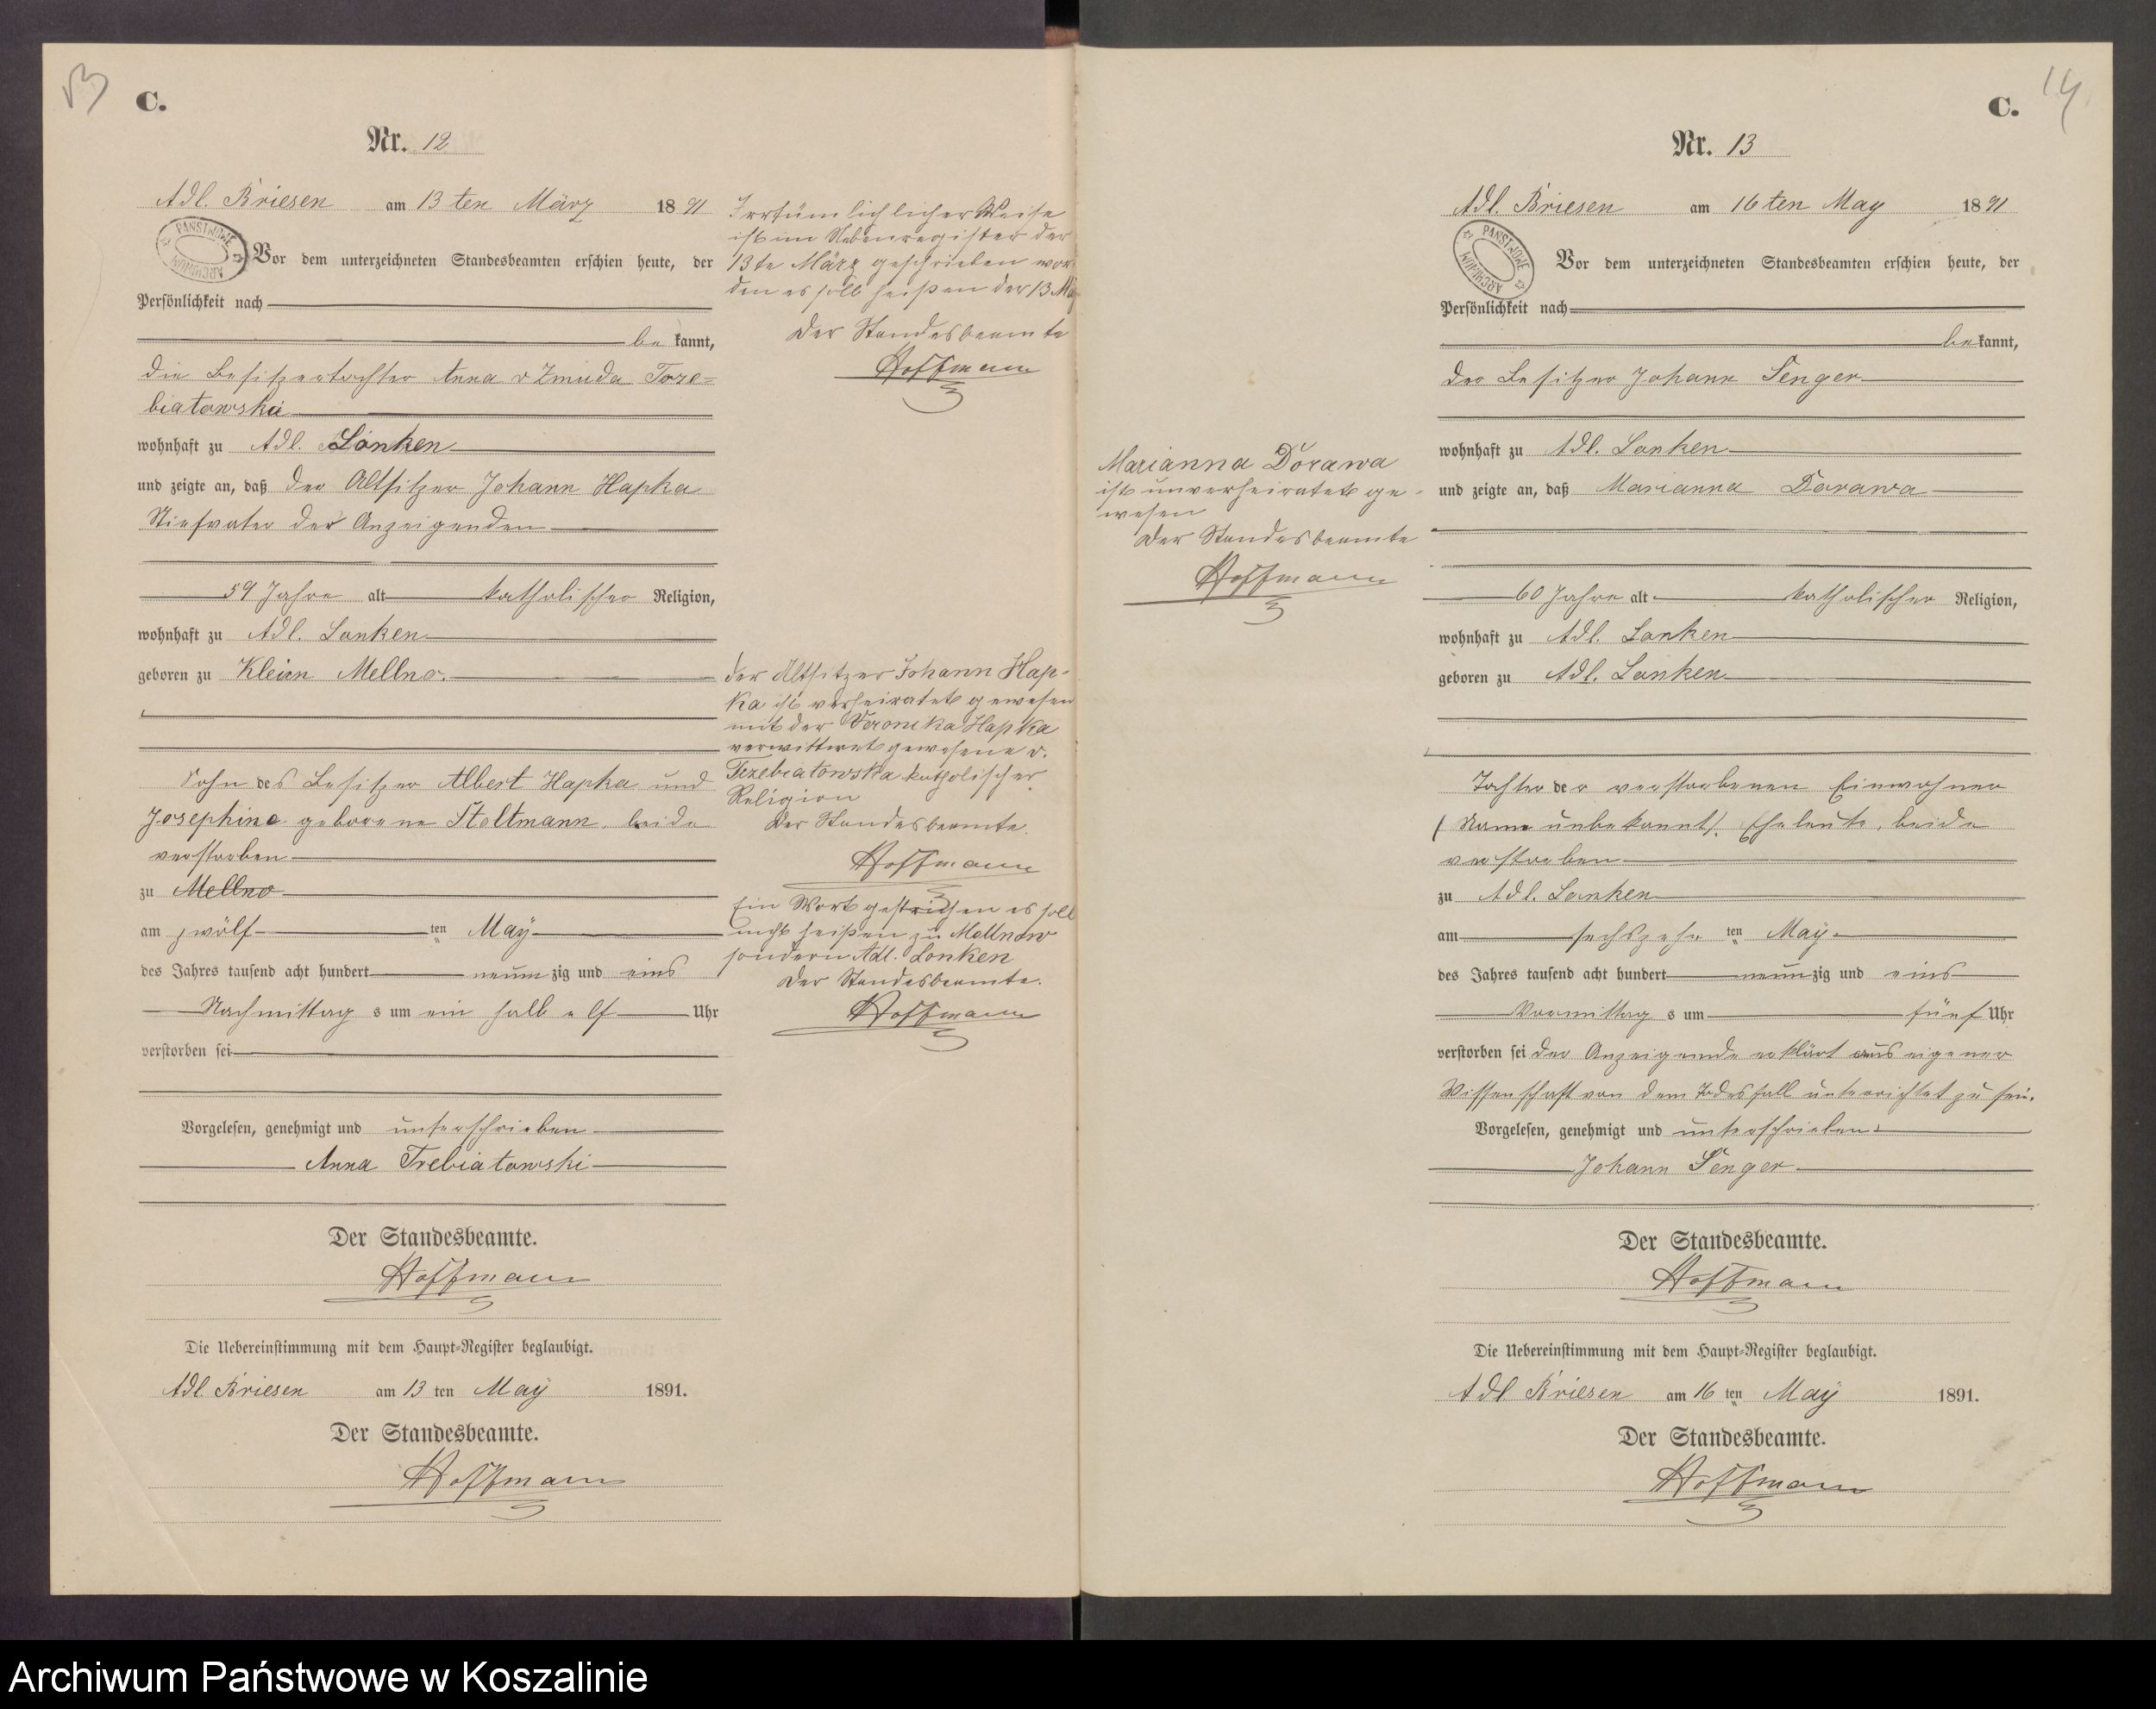 13
C.
Nr. 12
Adl. Briesen am 13 ten März 1891
PANSTWOWE ARCHIWUM
Vor dem unterzeichneten Standesbeamten erschien heute, der
Persönlichkeit nach
be kannt,
die Besitzertochter Anna v Zmuda Trze=
biatowski
wohnhaft zu Adl. Lonken
und zeigte an, daß der Altsitzer Johann Hapka
Stiefvater der Anzeigenden
59 Jahre alt katholischer Religion,
wohnhaft zu Adl. Lonken
geboren zu Klein Mellno.
Sohn des Besitzer Albert Hapka und
Josephine geborene Stoltmann, beide
verstorben
zu Mellno
am zwölf ten May
des Jahres tausend acht hundert neun zig und eins
Nachmittag s um ein halb elf Uhr
verstorben sei
Vorgelesen, genehmigt und unterschrieben
Anna Trebiatowski
Der Standesbeamte.
Hoffmann
Die Uebereinstimmung mit dem Haupt=Register beglaubigt.
Adl. Briesen am 13 ten May 1891.
Der Standesbeamte.
Hoffmann
Irrtümlichlicher Weise
ist im Nebenregister der
13te März geschrieben wor
den es soll heißen der 13 May
Der Standesbeamte
Hoffmann
Der Altsitzer Johann Hap-
ka ist verheiratet gewesen
mit der Veronika Hapka
verwittwet gewesene v.
Trzebiatowska katholischer
Religion
Der Standesbeamte.
Hoffmann
Ein Wort gestrichen es soll
nicht heißen zu Mellnow
sondern Adl. Lonken
Der Standesbeamte.
Hoffmann
14
C.
Nr. 13
Adl. Briesen am 16 ten May 1891
PANSTWOWE ARCHIWUM
Vor dem unterzeichneten Standesbeamten erschien heute, der
Persönlichkeit nach
be kannt,
der Besitzer Johann Senger
wohnhaft zu Adl. Lonken
und zeigte an, daß Marianna Dorawa
60 Jahre alt katholischer Religion,
wohnhaft zu Adl. Lonken
geboren zu Adl. Lonken
Tochter der verstorbenen Einwohner
(Name unbekannt). Eheleute, beide
verstorben
zu Adl. Lonken
am sechszehn ten May
des Jahres tausend acht hundert neun zig und eins
Vormittag s um fünf Uhr
verstorben sei der Anzeigende erklärt aus eigener
Wissenschaft von dem Todesfall unterrichtet zu sein.
Vorgelesen, genehmigt und unterschrieben
Johann Senger
Der Standesbeamte.
Hoffmann
Die Uebereinstimmung mit dem Haupt=Register beglaubigt.
Adl. Briesen am 16 ten May 1891.
Der Standesbeamte.
Hoffmann
Marianna Dorawa
ist unverheiratet ge-
wesen
Der Standesbeamte
Hoffmann
Archiwum Państwowe w Koszalinie